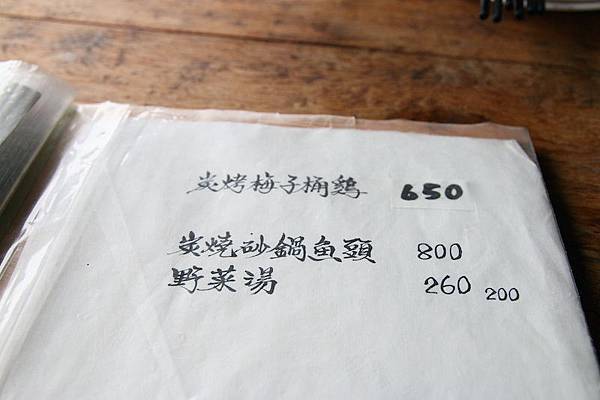 炭烤梅子桶鷄 650
炭燒砂鍋魚頭 800
野菜湯 260 200